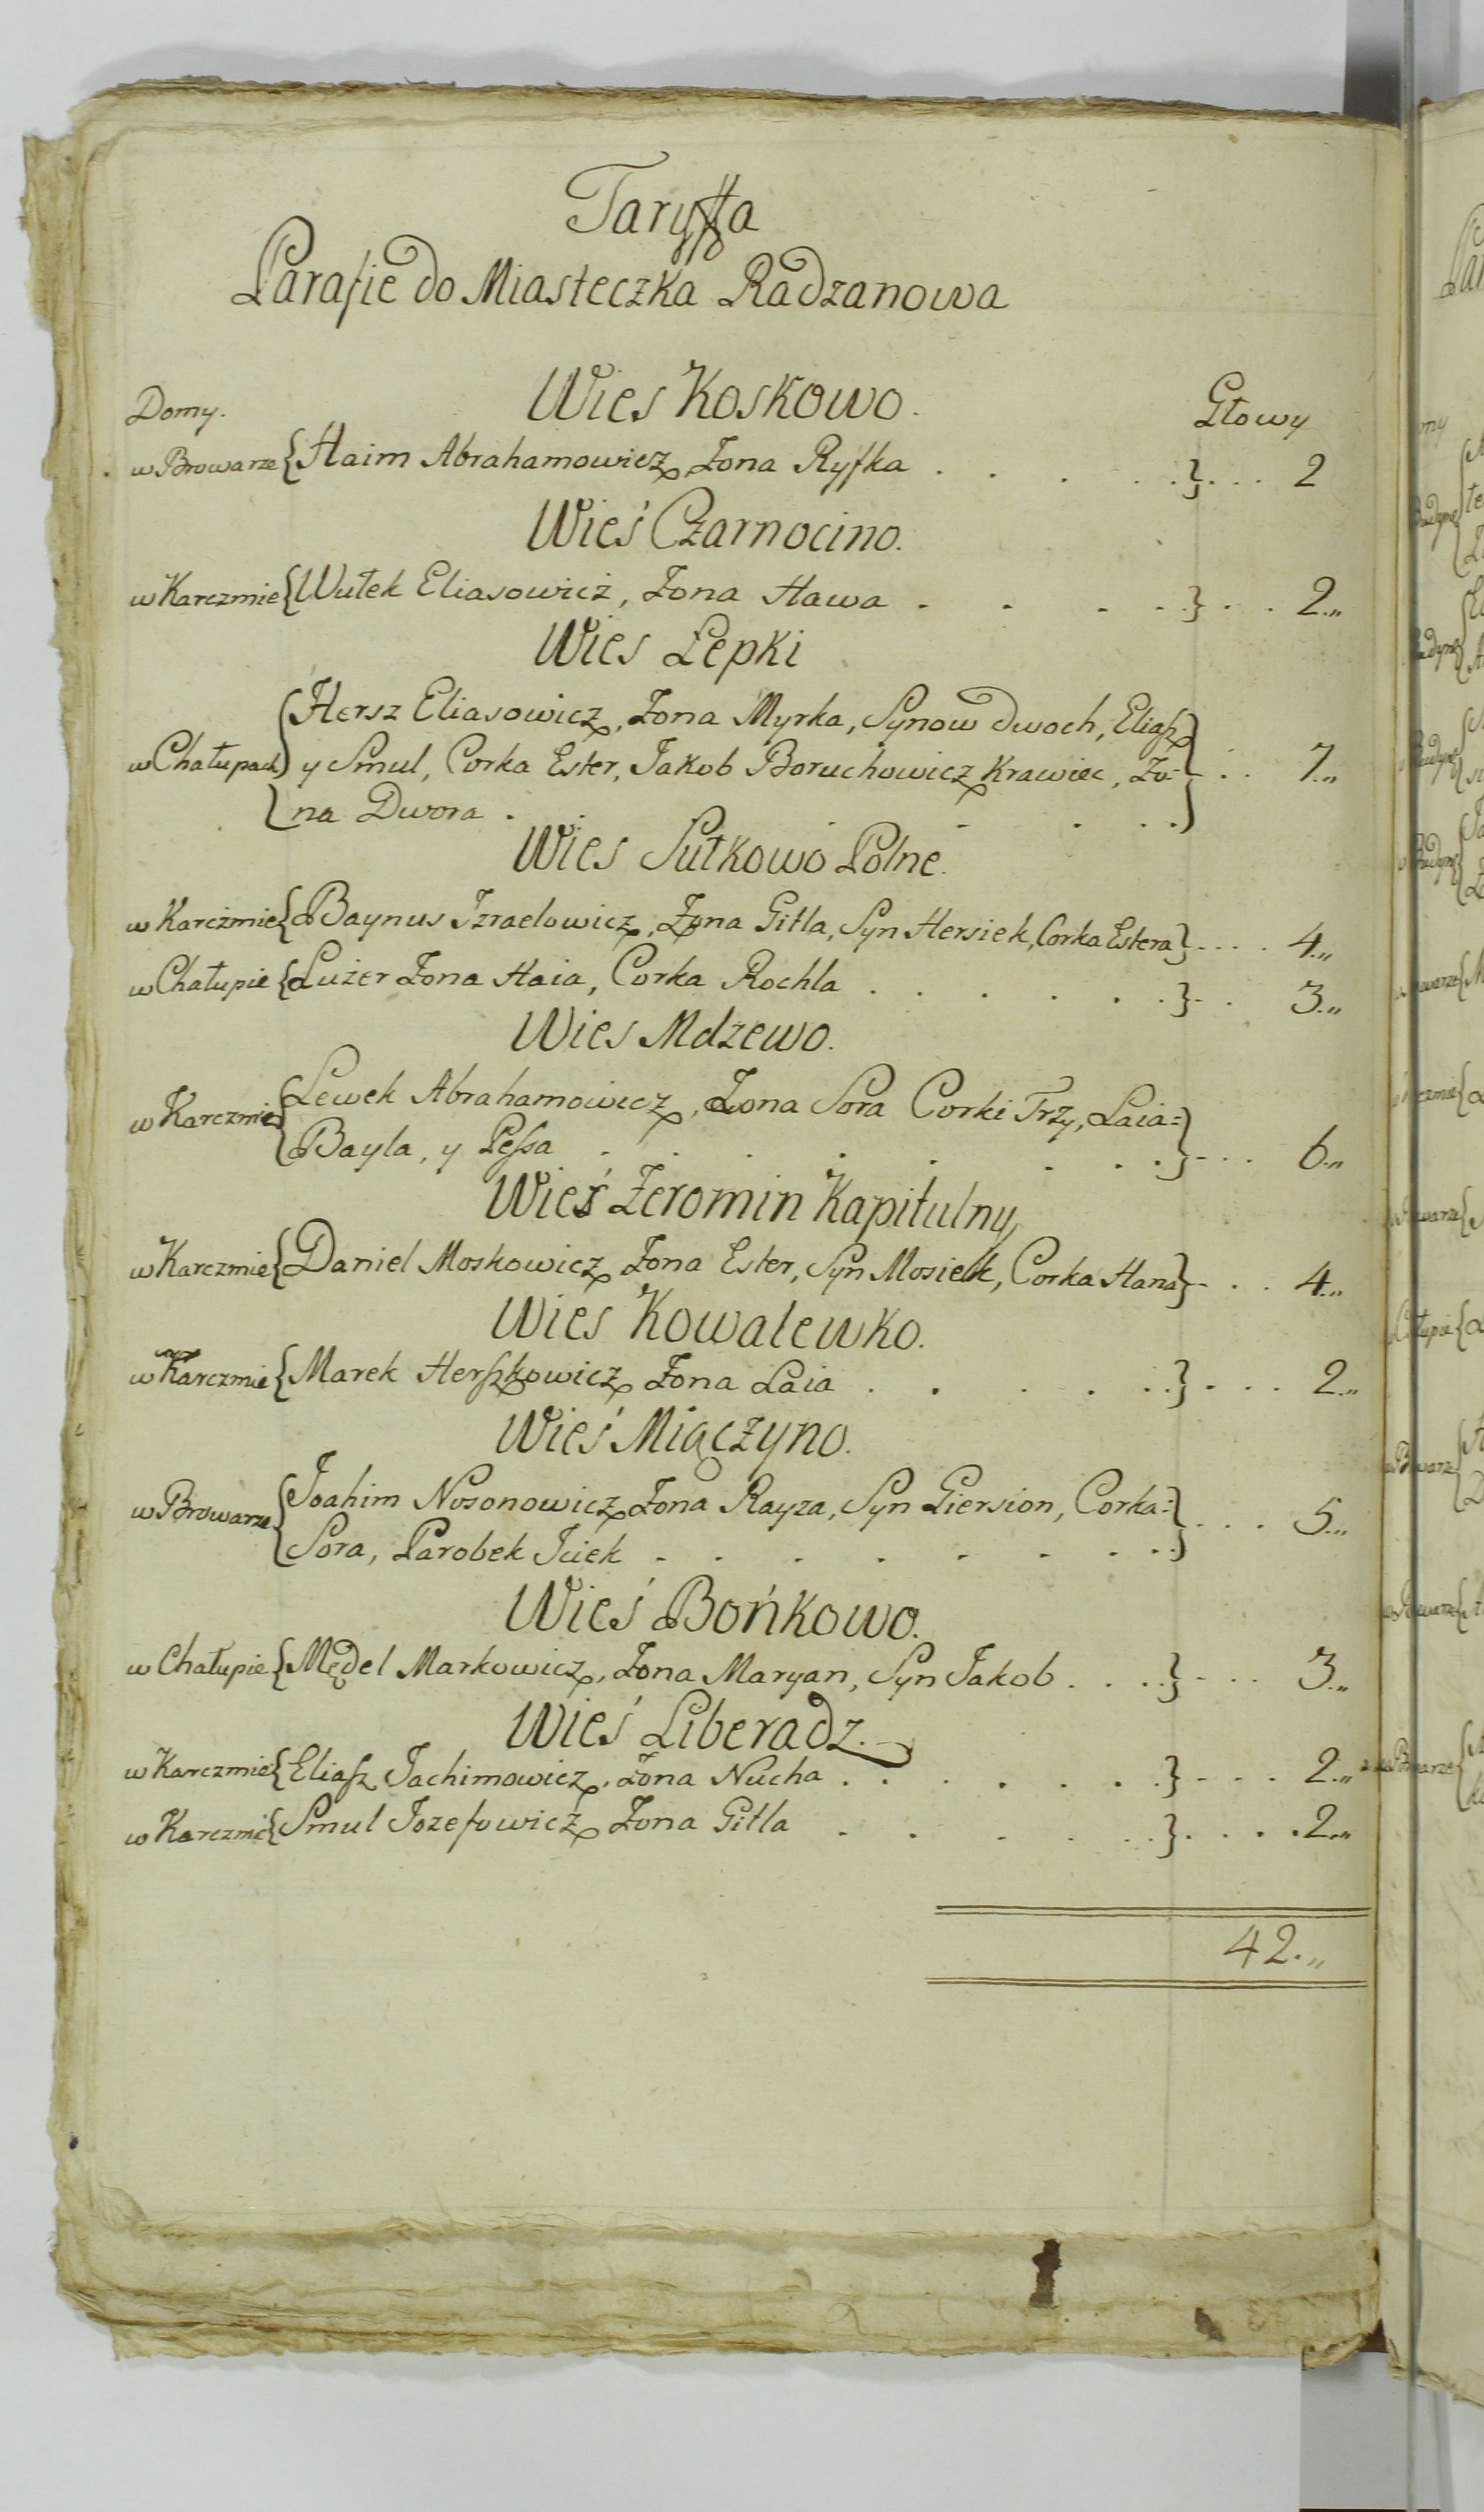 Taryffa
Parafie do Miasteczka Radzanowa
Domy. Wies Koskowo. Głowy
w Browarze {Haim Abrahamowicz, Zona Ryfka . . . . . } . . . 2
Wieś Czarnocino.
w Karczmie {Wułek Eliasowicż, Zona Hawa . . . . } . . . 2.„
Wies Łepki
Hersz Eliasowicz, Zona Myrka, Synow dwoch, Eliaſz
w Chałupach y Smul, Corka Ester, Jakob Boruchowicz Krawiec, Zo- . . 7.„
na Dwora . . . . . . .
Wies Sułkowo Polne.
w Karczmie {Baynus Izraelowicz, Zona Gitla, Syn Hersiek, Corka Estera} . . . . 4.„
w Chałupie {Luzer Zona Haia, Corka Rochla . . . . . . } . . 3.„
Wies Mdzewo.
w Karczmie {Lewek Abrahamowicz, Zona Sora Corki Trzy, Laia=
Bayla, y Peſsa . . . . . . . . } . . . 6.„
Wieś Zeromin Kapitulny,
w Karczmie {Daniel Moskowicz Zona Ester, Syn Mosiek, Corka Hana} . . . 4.„
Wies Kowalewko.
w Karczmie {Marek Herſzkowicz Zona Laia . . . . . . } . . . . 2.„
Wieś Miączyno.
w Browarze {Joahim Nosonowicz Zona Rayza, Syn Giersion, Corka= . . . 5.„
Sora, Parobek Iciek . . . . . . . . }
Wieś Bońkowo.
w Chałupie {Mędel Markowicz, Zona Maryan, Syn Jakob . . . . } . . . 3.„
Wieś Liberadz.
w Karczmie {Eliaſz Jachimowicz, Zona Nucha . . . . . . . } . . . . 2.„
w Karczmie {Smul Jozefowicz Zona Gitla . . . . . . } . . . . 2.„
42.„